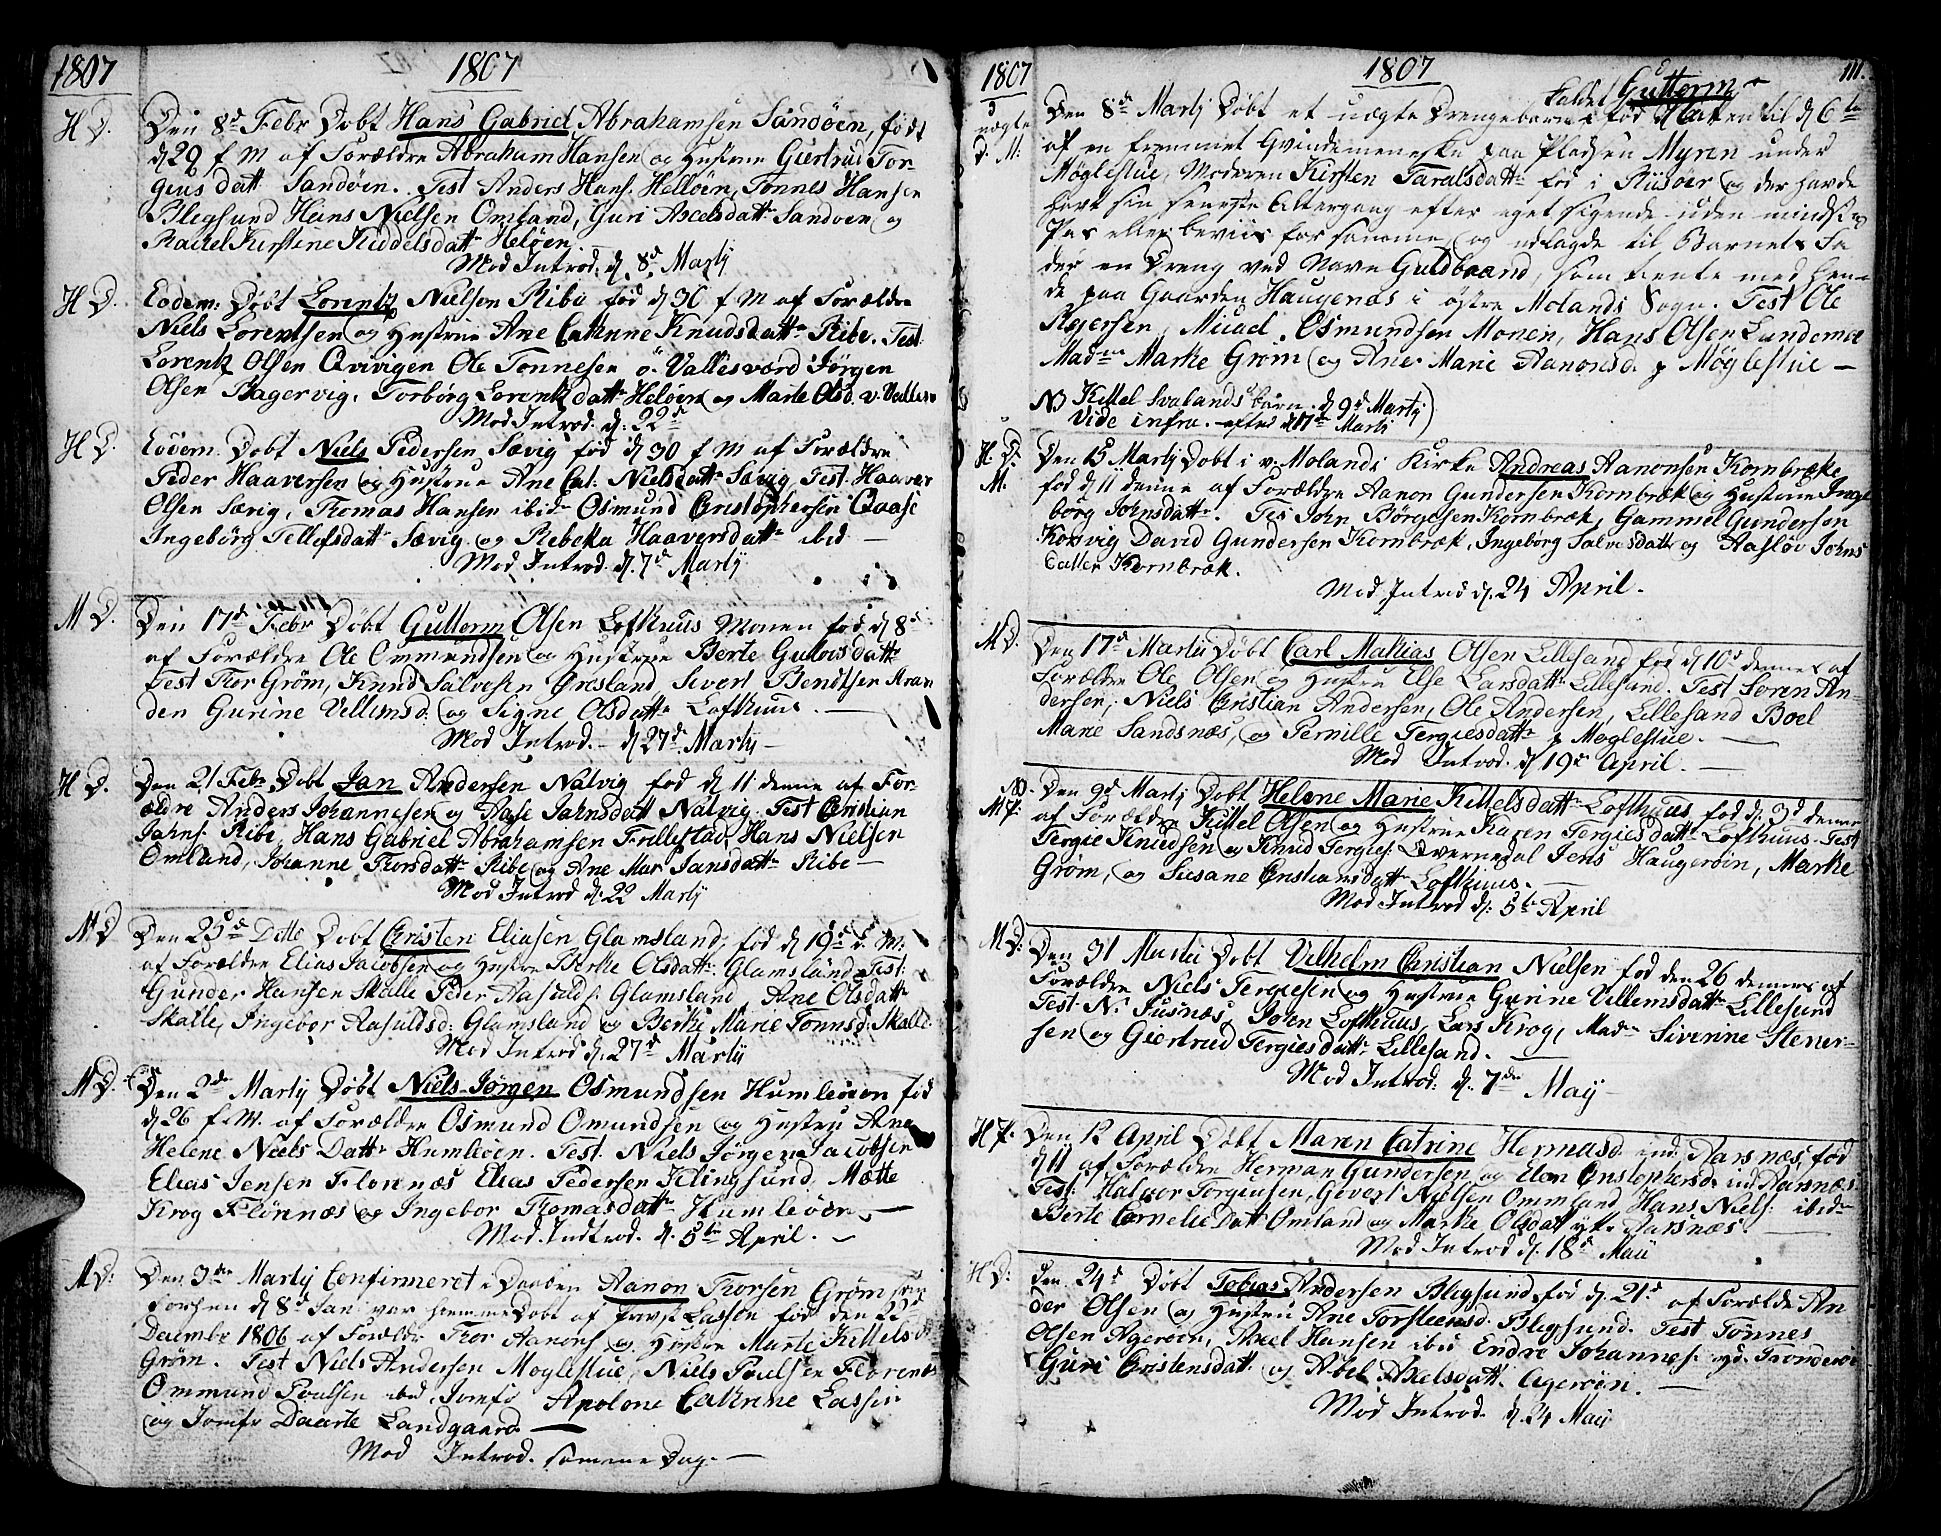 1807
1807
H D. Den 8d Febr Døbt Hans Gabriel Abrahamsen Sandøen, født
d 29 f M af Forældre Abraham Hansen og Hustrue Giertrud Tor-
gius datt Sandøen. Test Anders Hans. Helløen, Tønnes Hansen
Blegsund Hans Nielsen Omland, Guri Axelsdattr Sandøen og
Rachel Kirstine Kiddelsdattr Heløen.
Mod Introd. d. 8d Martij
H D. Eodem: Døbt Lorentz Nielsen Ribe fød d 30 f M af Forældre
Niels Lorentsen og Hustrue Ane Catrine Knudsdattr Ribe. Test
Lorentz Olsen Qvivigen Ole Tønnesen ø. Vallesværd Jørgen
Olsen Bagervig, Torbørg Lorentzdattr Heløen og Marte Olsd. v. Valles
Mod Introd. d: 22d
H D. Eodem. Døbt Niels Pedersen Sævig fød d 30 f M af Forældre
Peder Haaversen og Hustrue Ane Cat. Nielsdattr Sævig, Test. Haaver
Olsen Sævig, Thomas Hansen ibidm Osmund Cristophersen Qaase
Ingebørg Tellefsdattr Sævig og Rebeka Haaversdattr ibid —
Mod Introd. d. 7d Martij
M D. Den 17d Febr Døbt Gutterm Olsen Lofthuus Monen fød d 8d
af Forældre Ole Ommundsen og Hustrue Berte Gutormsdattr
Test Tor Grøm, Knud Salvesen Sivert Bendtsen Stran
den Gurine Vellemsd. og Signe Olsdattr Lofthuus. —
Mod Introd. — d 27d. Martij —
H D. Den 21 Febr Døbt Jan Andersen Natvig fød d 11 denne af For-
ældre Anders Johannesen og Aase Jahnsdatt Natvig. Test Christian
Jahns. Ribe, Hans Gabriel Abrahamsen Frillestad, Hans Nielsen
Omland, Johanne Thorsdattr Ribe og Ane Mar Jansdattr Ribe —
Mod Introd d. 22 Martij
M D Den 25d Dette Døbt Christen Eliasen Glamsland, fød d 19d M:
af Forældre Elias Jacobsen og Hustrue Berthe Olsdattr Glamsland Test
Gunder Hansen Skalle Peder Aasulds: Glamsland, Ane Olsdattr
Skalle, Ingebor Aasuldsd: Glamsland og Berthe Marie Tønnsd: Skalle
Mod Introd d. 27d Martij
M D. Den 2de Martij Døbt Niels Jørgen Osmundsen Humleøen fød
d 26 f. M. af Forældre Osmund Omundsen og Hustru Ane
Helene Niels Datter Humleøen. Test. Niels Jørgen Jacobsen
Elias Jensen Florenæs Elias Pedersen Klingsund, Mætte
Krog Flørnnæs og Ingebor Thomasdattr Humleøen. —
Mod. Indtrod. d. 5te April. —
M D: Den 3die Martij Confirmeret i Daaben Aanon Thorsen Grøm som
forhen d 8d Jan var hiemmeDøbt af Lassen fød den 22d
Decembr 1806 af Forældre Thor Aanons og Hustru Marte Kittelsd
Grøm. Test Niels Andersen Moglestue, Niels Poulsen Florenæs
Ommund Poulsen ibid Jomfr Apolone Cathrine Lassen
og Jomfr Daarte Landgaard —
Mod Introd. samme Dag. —
1807
1807
111.
kaldet Gutterm
uægte
D. M: Den 8d Martij Døbt et uægte Drengebarn fød Natten til d 6te
af en fremmet Qvindemenneske paa Pladsen Myren under
Møglestue, Moderen Kirsten Taralsdattr fød i Riisøer og der havde
havt sin seneste Altergang efter eget sigende uden mindste
Pas eller beviis for samme, og udlagde til Barnets Fa
der en Dreng ved Navn Guldbrand, som tiente med hen-
de paa Gaarden Haugenæs i østre Molands Sogn. Test Ole
Rejersen, Micael Osmundsen Monen, Hans Olsen Lundemoe
Madme Marke Grøm og Ane Marie Aanonsd. p Møglestue —
NB Kittel Svalands barn. d 9d Martij
Vide infra. efter d 17de Martij
H D.
M. Den 15 Martij Døbt i v. Molands Kirke Andreas Aanonsen Kornbræke
fød d 11 denne af Forældre Aanon Gundersen Kornbræk og Hustrue Inge
børg Johnsdattr. Tes John Børgesen Kornbræk, Gammel Gundersen
Korsvig David Gundersen Kornbræk, Ingeborg Salvesdattr og Aasløv Johns
Datter Kornbræk.
Mod Introd d. 24 April.
M D. Den 17d Martii Døbt Carl Mathias Olsen Lillesand fød d 10d dennes af
Forældre Ole Olsen og Hustru Else Larsdattr Lillesand. Test Søren An-
dersen, Niels Christian Andersen, Ole Andersen, Lillesand Boel
Marie Sandsnæs, og Pernille Tergiesdattr p Moglestue. —
Mod Introd. d 19d April. —
NB.
M P. Den 9d Martij Døbt Helene Marie Kittelsdattr Lofthuus, fød d. 3d denne
af Forældre Kittel Olsen og Hustrue Karen Tergiesdattr Lofthuus. Test
Tergie Knudsen og Knud Tergies. Øvernedal Jens Haugerøin, Marthe
Grøm, og Susane Christiansdattr Lofthuus. —
Mod Introd d: 5te April
M D: Den 31 Martii Døbt Vilhelm Christian Nielsen fød den 26 dennes af
Forældre Niels Tergiesen og Hustrue Gurine Villemsdattr Lillesand
Test: N. Jusnæs, John Lofthuus, Lars Krog, Madm Siverine Stener-
sen og Giertrud Tergiesdattr Lillesand.
Mod Introd: d. 7de May —
H P. Den 12 April Døbt Maren Catrine Hermansd. ind: Aarsnæs, fød
d 11 af Forældre Herman Gundersen og Elen Cristophersd. ind Aarsnæs
Test: Halvor Torgiusen, Gevert Nielsen Ommland Hans Niels: ibidm
Berte Cornelie Datt Omland og Marthe Olsdatt ytre Aarsnæs. —
Mod Introd d. 18d Maij
H D: Den 24d Døbt Tobias Andersen Blegsund, fød d. 21d af Forældre An
der Olsen og Hustru Ane Torsteensd. Blegsund. Test Tønnes
Olsen Agerøen, Axel Hansen ibid Endre Johannes. yd. Tronderøe
Guri Cristensdatt og Abel Axelsdattr Agerøin. —
Mod Introd. d. 24 Maij